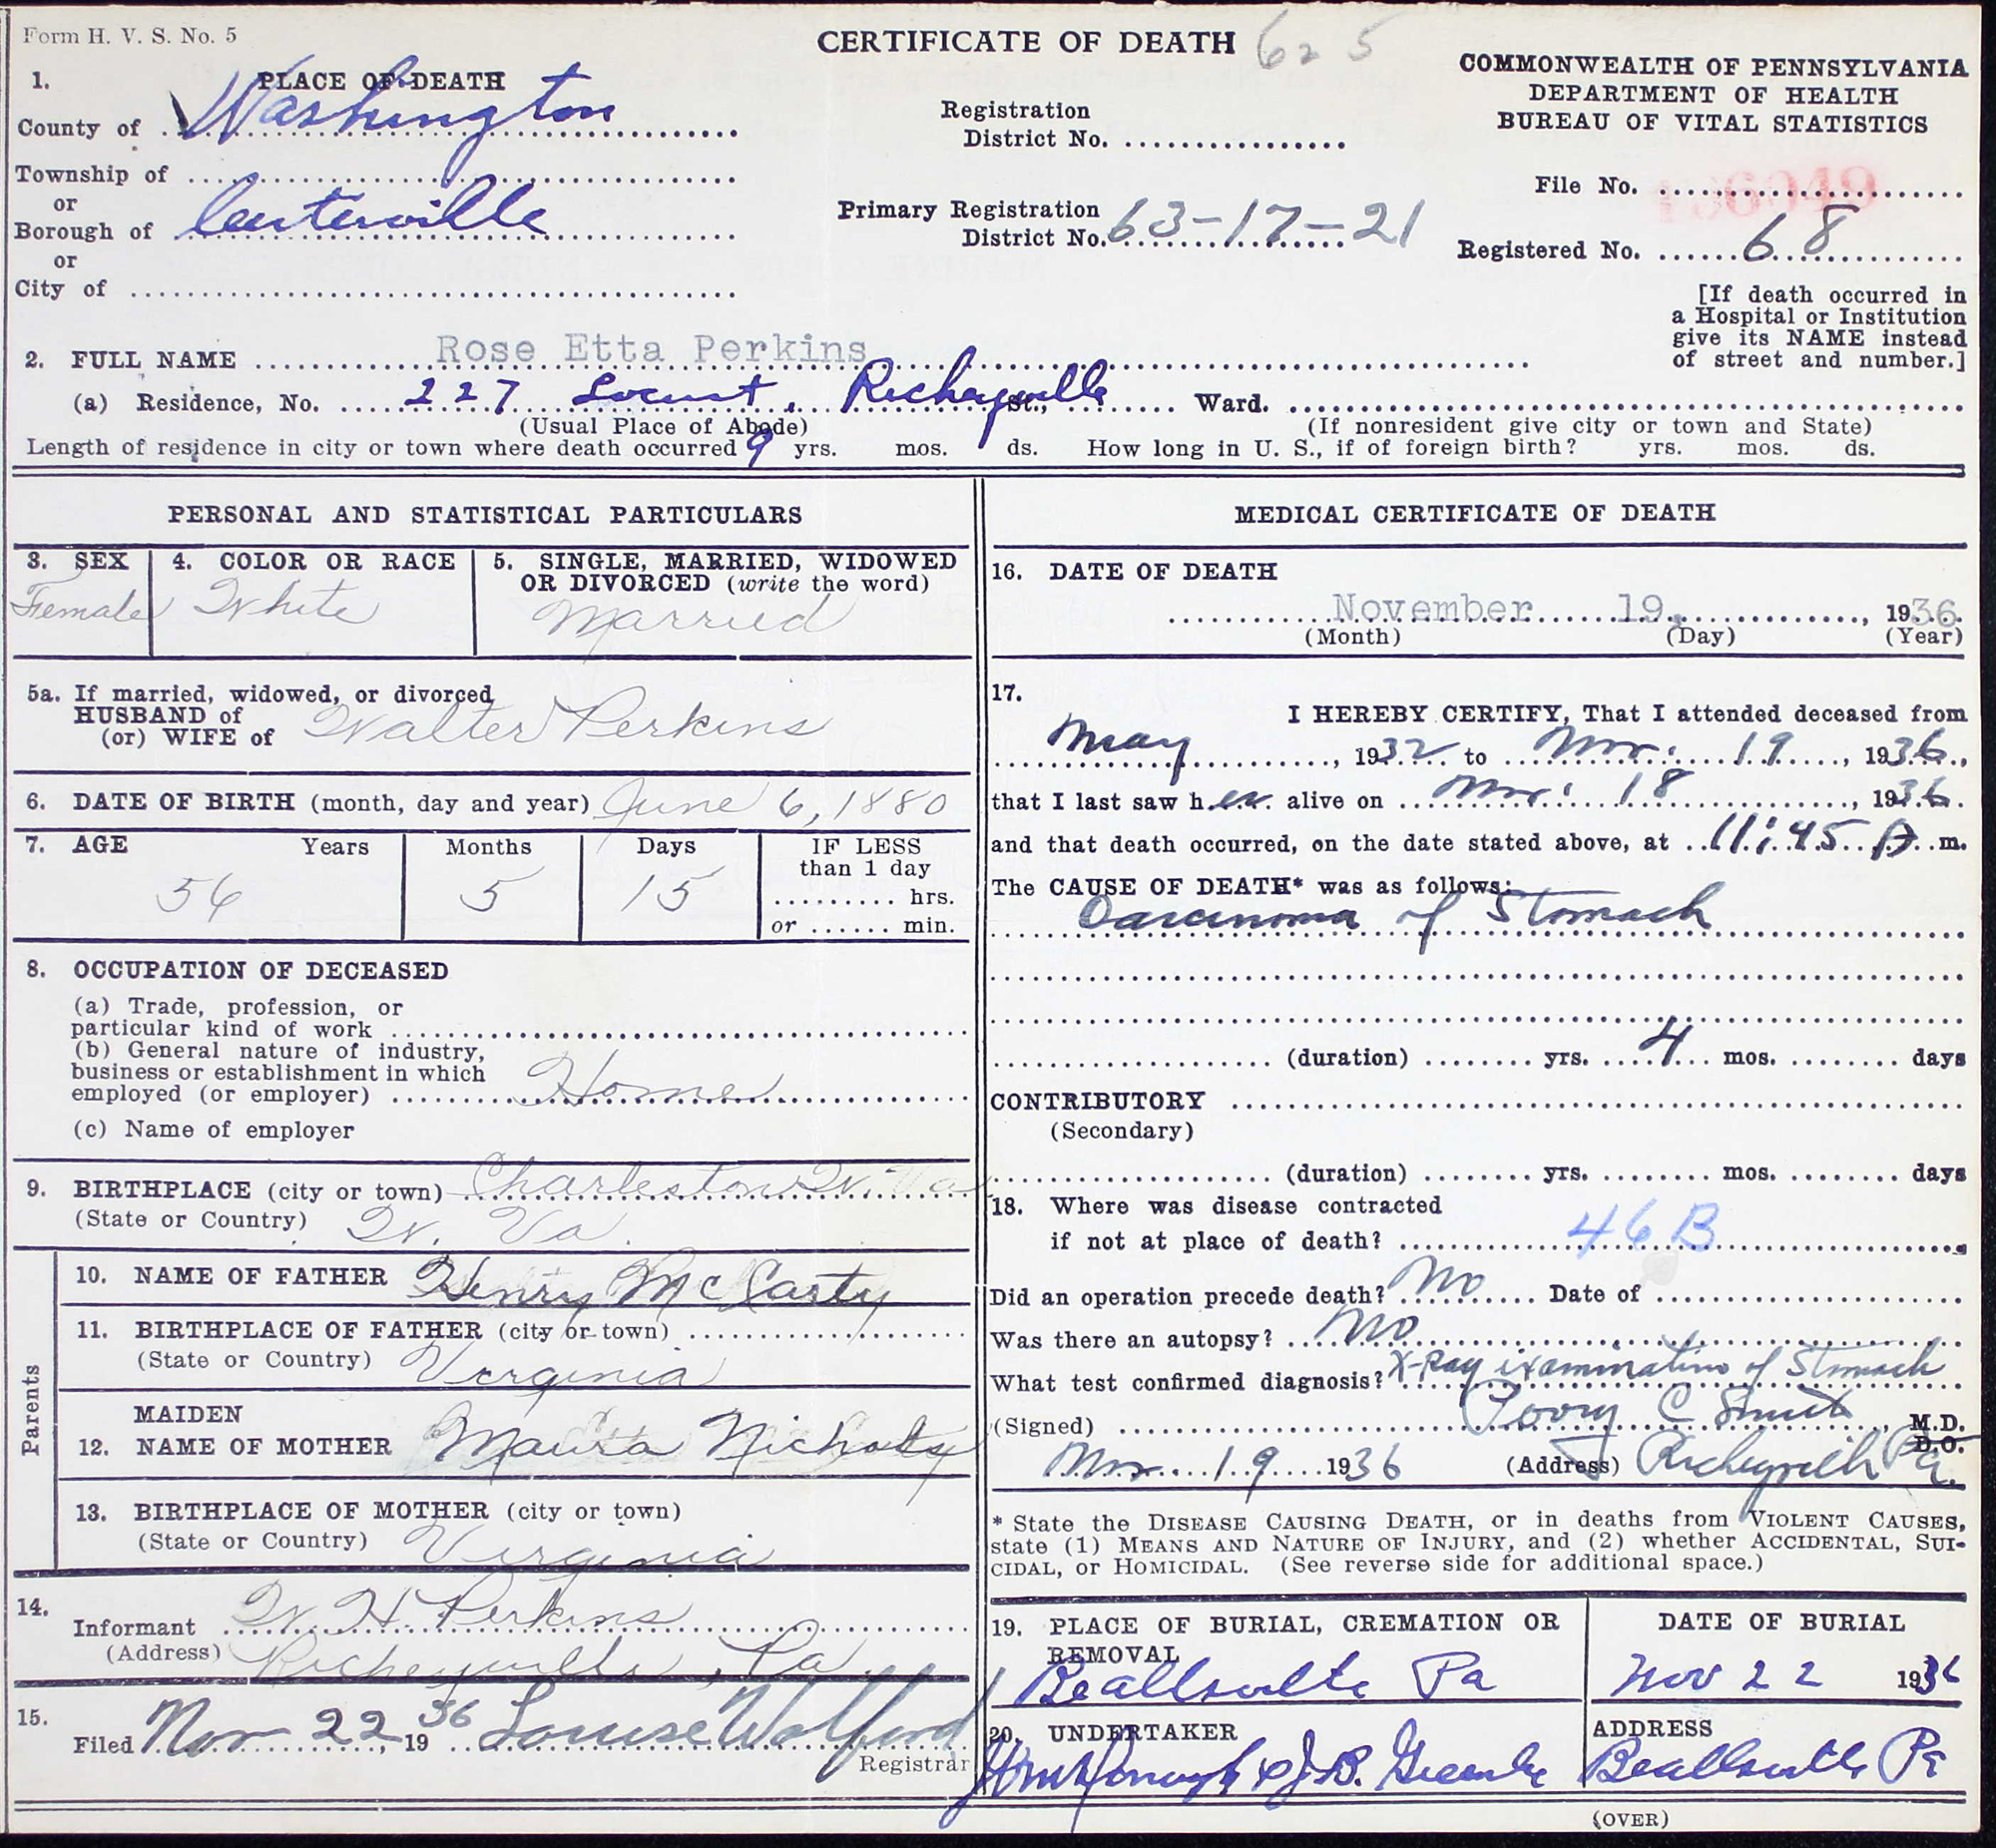 Form H. V. S. No. 5
CERTIFICATE OF DEATH 625
COMMONWEALTH OF PENNSYLVANIA
DEPARTMENT OF HEALTH
BUREAU OF VITAL STATISTICS
1. PLACE OF DEATH
County of Washington
Township of
or
Borough of Centerville
or
City of
Registration
District No.
Primary Registration
District No. 63-17-21
File No.
Registered No. 68
[If death occurred in
a Hospital or Institution
give its NAME instead
of street and number.]
2. FULL NAME Rose Etta Perkins
(a) Residence, No. 227 Locust, Richeyville St., Ward.
(Usual Place of Abode) (If nonresident give city or town and State)
Length of residence in city or town where death occurred 9 yrs. mos. ds. How long in U. S., if of foreign birth? yrs. mos. ds.
PERSONAL AND STATISTICAL PARTICULARS
3. SEX
Female
4. COLOR OR RACE
White
5. SINGLE, MARRIED, WIDOWED
OR DIVORCED (write the word)
Married
5a. If married, widowed, or divorced
HUSBAND of
(or) WIFE of Walter Perkins
6. DATE OF BIRTH (month, day and year) June 6, 1880
7. AGE Years Months Days
56 5 15
IF LESS
than 1 day
hrs.
or min.
8. OCCUPATION OF DECEASED
(a) Trade, profession, or
particular kind of work
(b) General nature of industry,
business or establishment in which
employed (or employer) Home
(c) Name of employer
9. BIRTHPLACE (city or town) Charleston W. Va
(State or Country) W. Va.
Parents
10. NAME OF FATHER Henry McCarty
11. BIRTHPLACE OF FATHER (city or town)
(State or Country) Virginia
MAIDEN
12. NAME OF MOTHER
13. BIRTHPLACE OF MOTHER (city or town)
(State or Country) Virginia
14.
Informant W. H. Perkins
(Address) Richeyville, Pa.
15.
Filed Nov 22, 1936 Louise Wolford
Registrar
MEDICAL CERTIFICATE OF DEATH
16. DATE OF DEATH
November 19, 1936
(Month) (Day) (Year)
17.
I HEREBY CERTIFY, That I attended deceased from
May, 1932 to Nov. 19, 1936,
that I last saw her alive on Nov. 18, 1936.
and that death occurred, on the date stated above, at 11:45 A m.
The CAUSE OF DEATH* was as follows:
Carcinoma of Stomach
(duration) yrs. 4 mos. days
CONTRIBUTORY
(Secondary)
(duration) yrs. mos. days
18. Where was disease contracted
if not at place of death? 46B
Did an operation precede death? No Date of
Was there an autopsy? No
What test confirmed diagnosis? X-Ray examination of Stomach
(Signed) C M.D.
D.O.
Nov. 19 1936 (Address) Richeyville Pa.
* State the DISEASE CAUSING DEATH, or in deaths from VIOLENT CAUSES,
state (1) MEANS AND NATURE OF INJURY, and (2) whether ACCIDENTAL, SUI-
CIDAL, or HOMICIDAL. (See reverse side for additional space.)
19. PLACE OF BURIAL, CREMATION OR
REMOVAL
Beallsville Pa
DATE OF BURIAL
Nov 22 1936
20. UNDERTAKER
J.B.
ADDRESS
Beallsville Pa
(OVER)